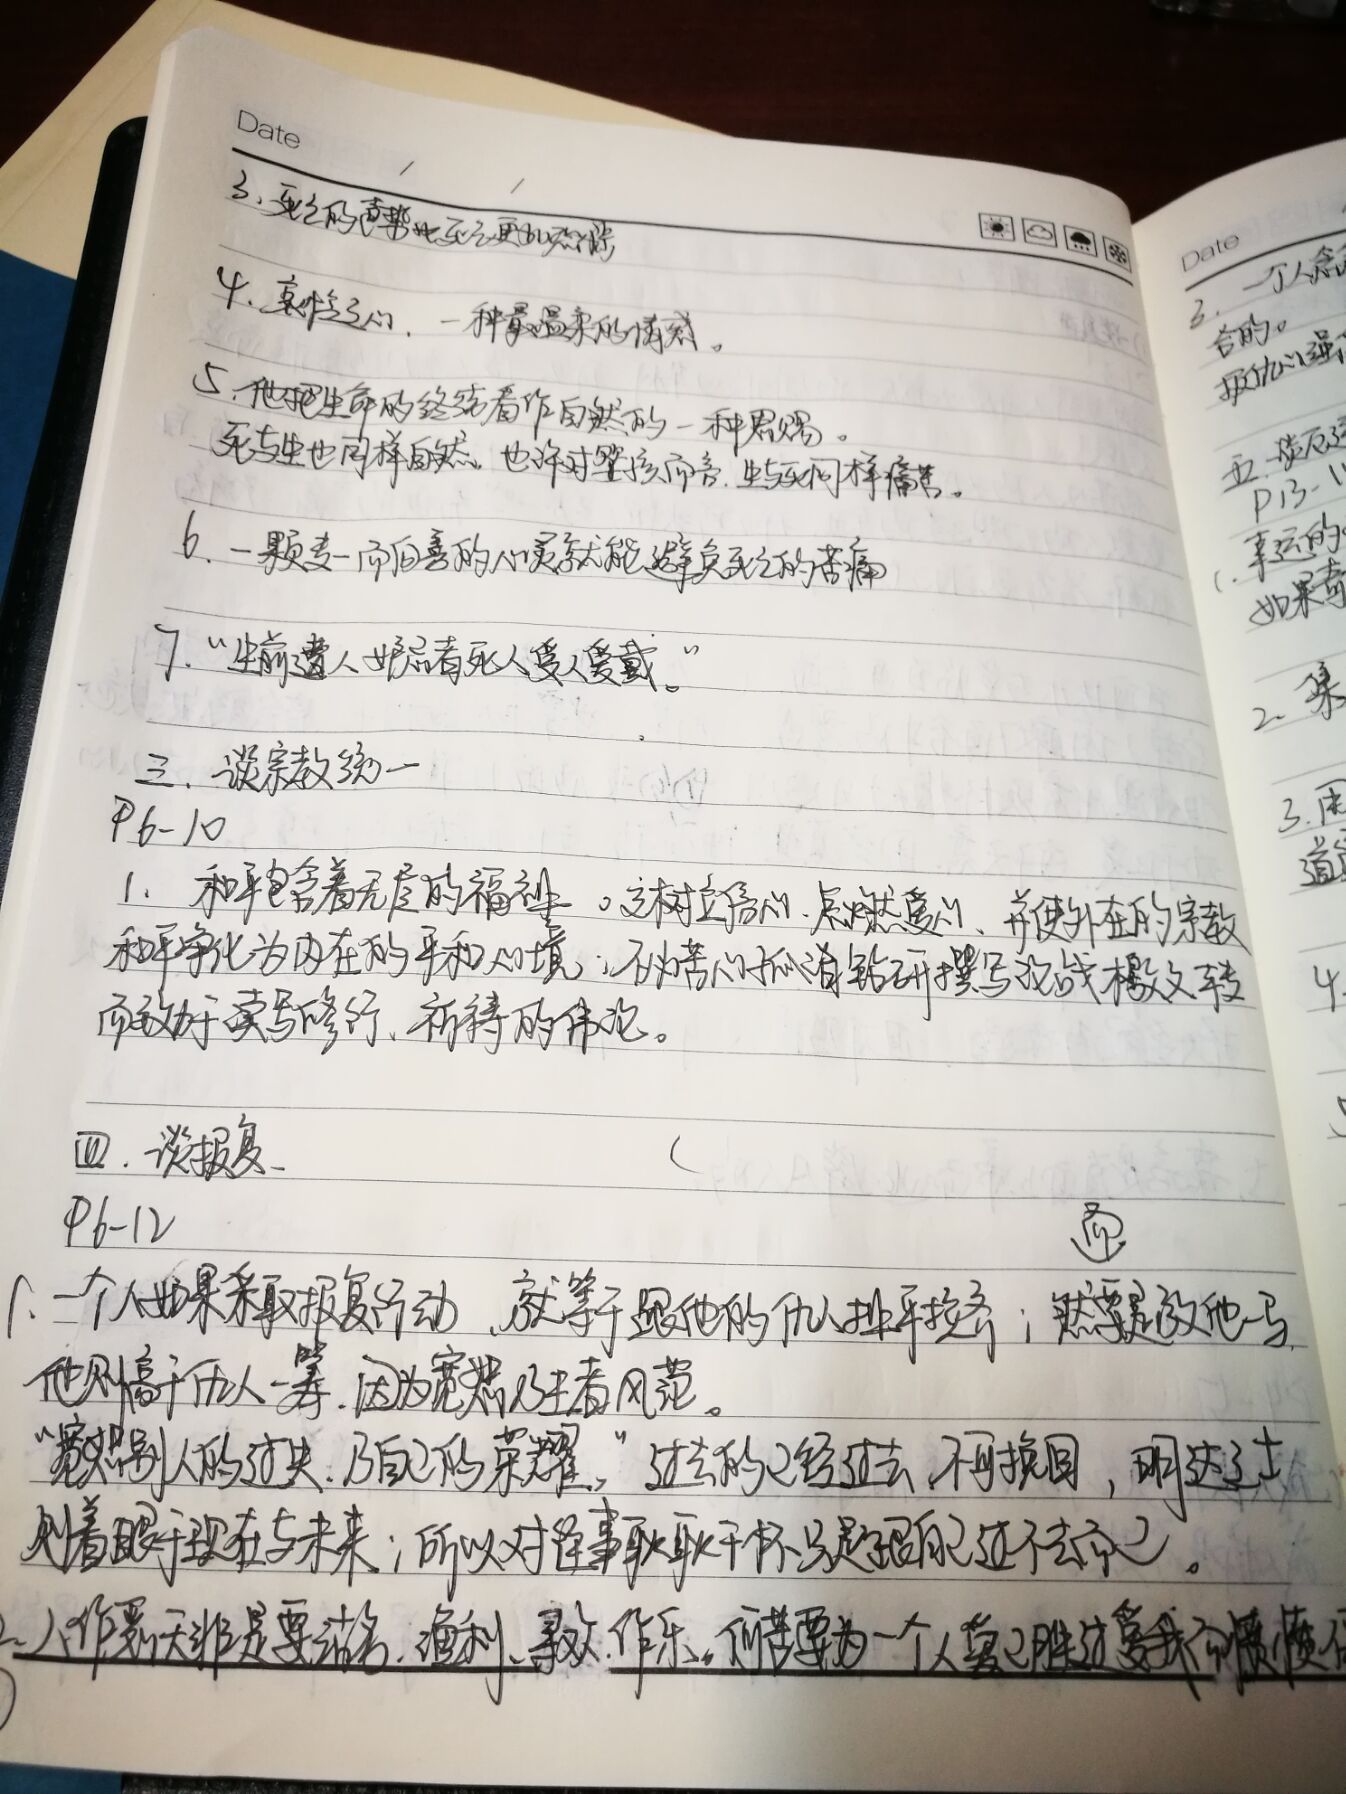 Date
3. 死亡的声势比死亡更加恐怖
4. 哀怜之心，一种最温柔的情感。
5. 他把生命的终结看作自然的一种恩赐。
死与生也同样自然。也许对婴孩而言，生与死同样痛苦。
6. 一颗专一而向善的心灵就能避免死亡的苦痛
7. “生前遭人妒忌者死人受人爱戴。”
三、谈宗教统一
P6-10
1. 和平包含着无尽的福祉。它树立信心、点燃爱心、并使外在的宗教
和平净化为内在的平和心境；不为苦心孤诣钻研撰写论战檄文转
而致力于读写修行、祈祷的伟论。
四、谈报复
P6-12
而
1. 一个人如果采取报复行动，就等于跟他的仇人扯平找齐；然要是放他一马，
他则高于仇人一筹，因为宽恕乃王者风范。
“宽恕别人的过失，乃自己的荣耀。”过去的已经过去，不可挽回，明达之士
则着眼于现在与未来；所以对往事耿耿于怀只是跟自己过不去而已。
2. 人作恶无非是要沽名、渔利、寻欢、作乐。何苦要为一个人爱己胜过爱我而愤愤
Date
3. 一个人念
合的。
报仇心强
五、
P13-1
1. 幸运的
如果奇
2. 集
3.
道
4.
5